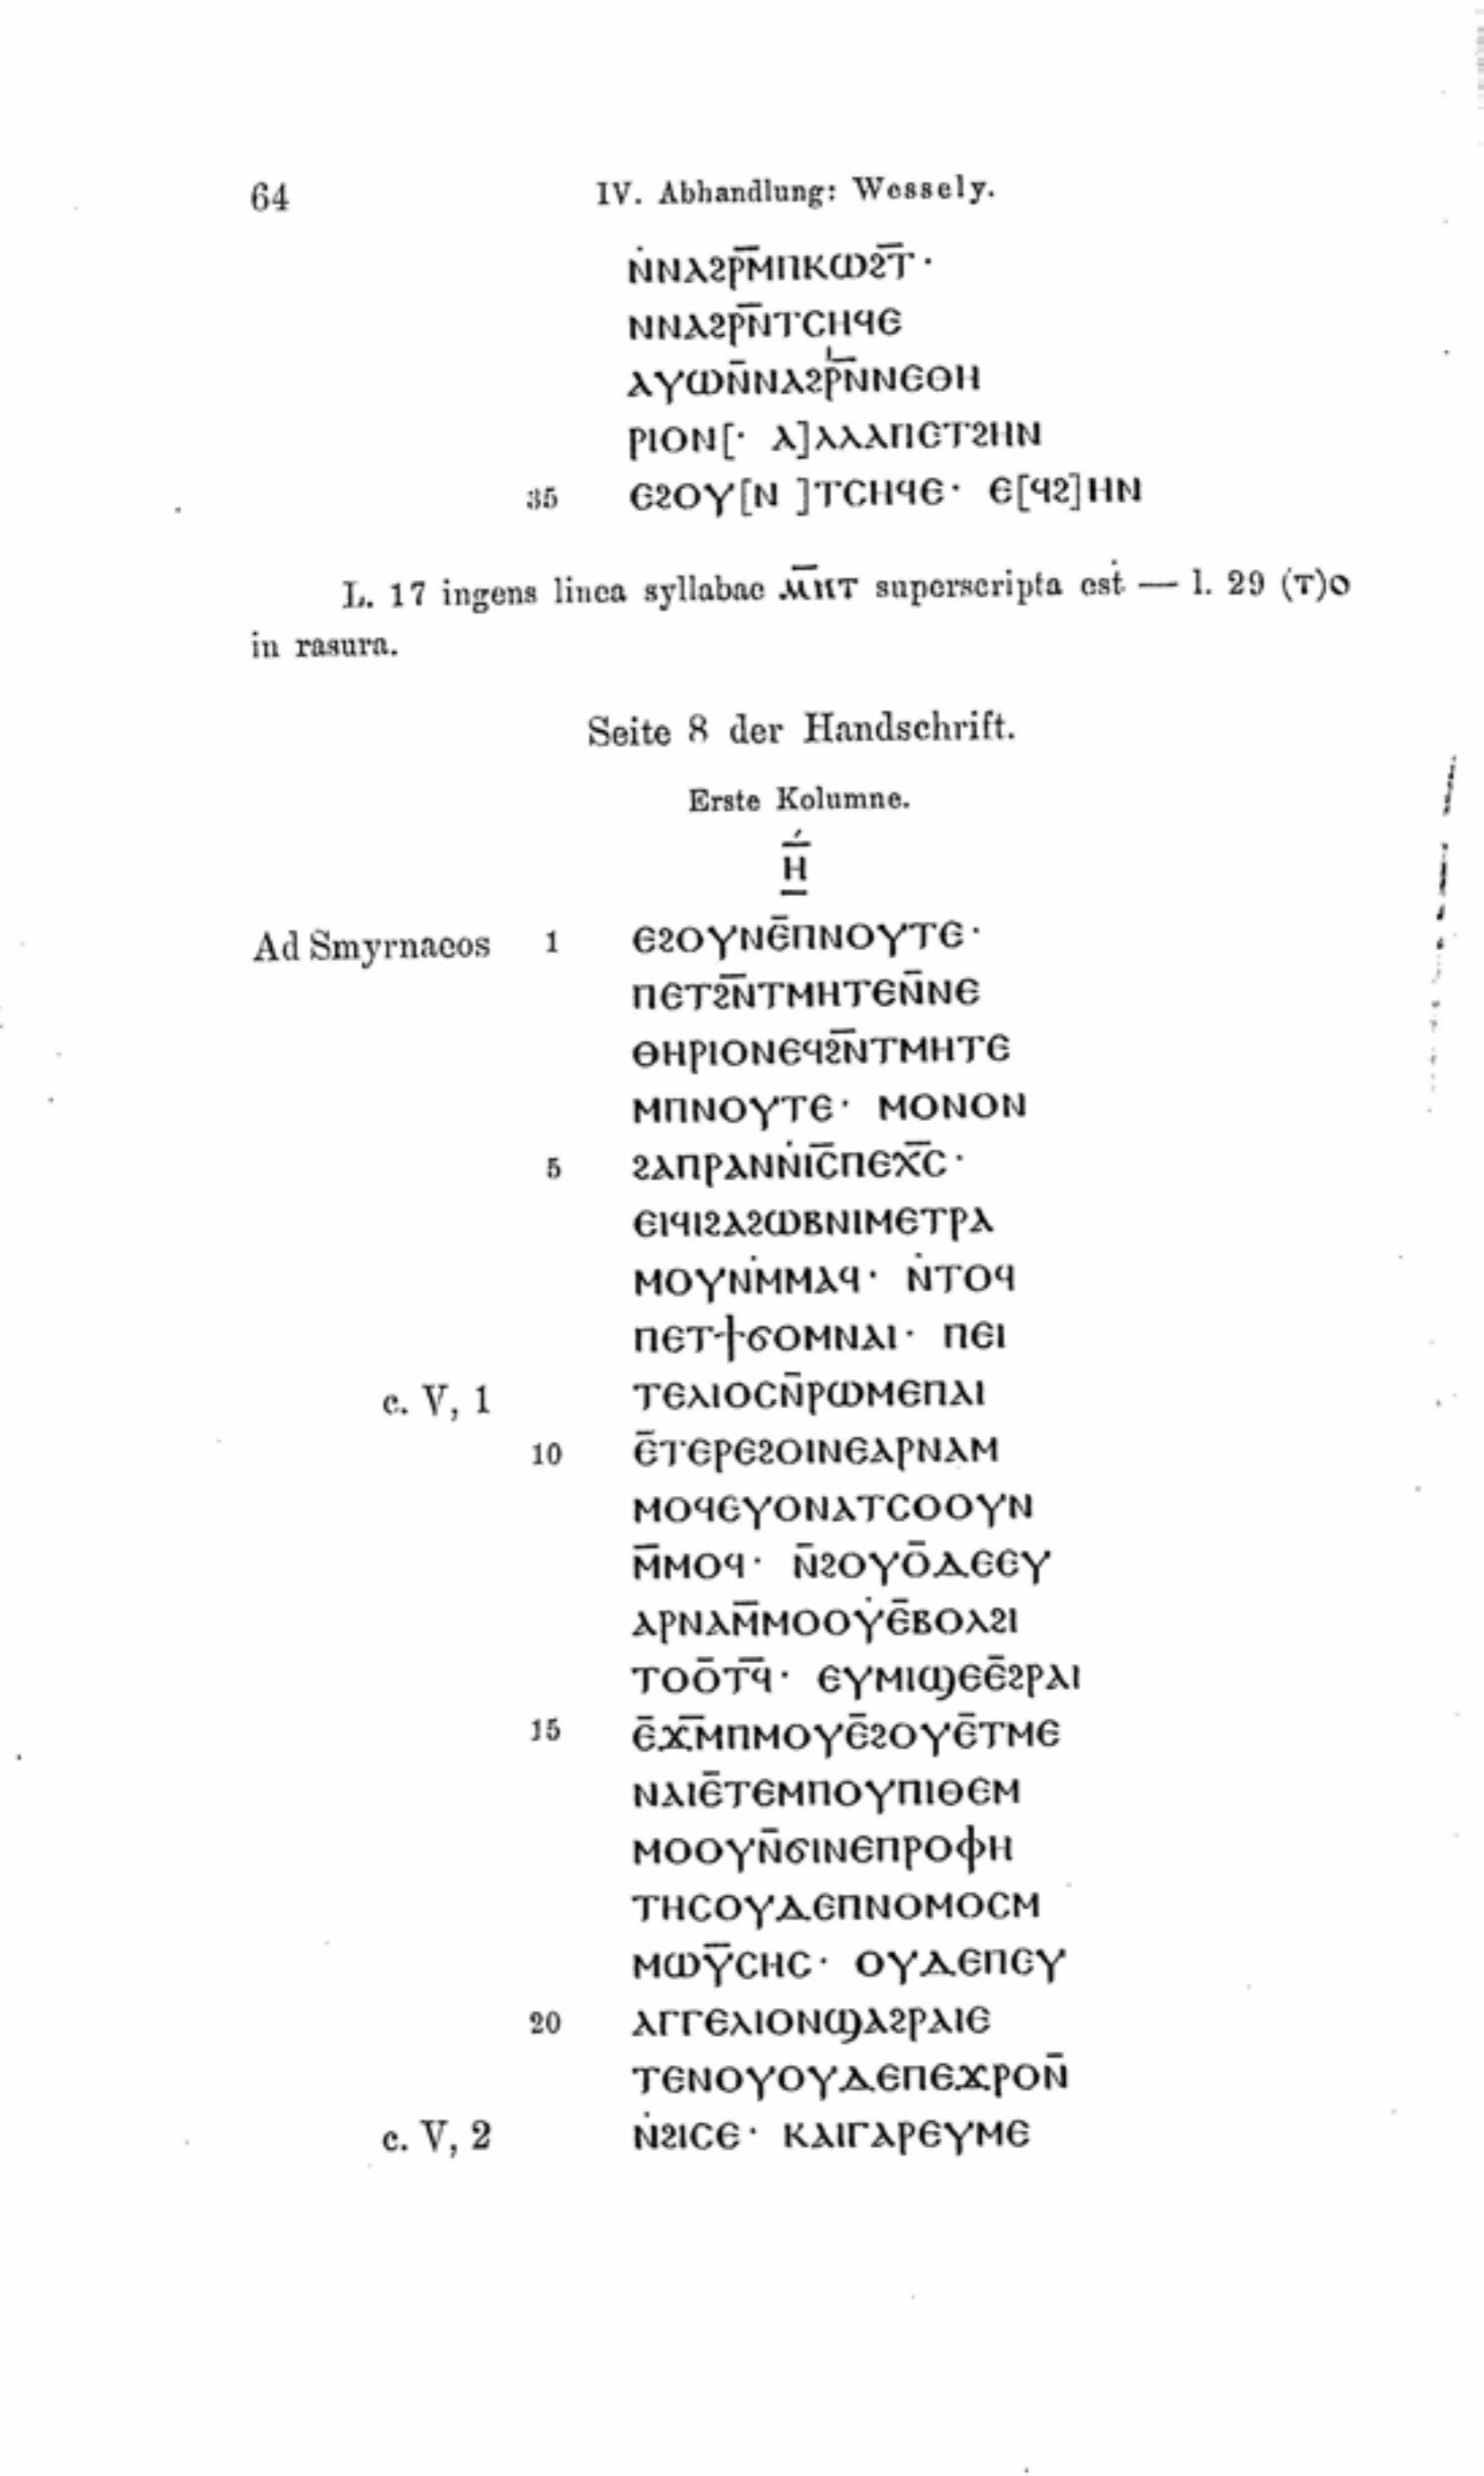 64 IV. Abhandlung: Wessely.
ⲚⲚⲀϨⲢ̅ⲘⲠⲔⲰϨ̅Ⲧ ·
ⲚⲚⲀϨⲢ̅ⲚⲦⲤⲎϤⲈ
ⲀⲨⲰⲚ̅ⲚⲀϨⲢ̅ⲚⲚⲈⲐⲎ
ⲢⲒⲞⲚ[· Ⲁ]ⲖⲖⲀⲠⲈⲦϨⲎⲚ
35 ⲈϨⲞⲨ[Ⲛ ]ⲦⲤⲎϤⲈ· Ⲉ[ϤϨ]ⲎⲚ
L. 17 ingens linea syllabae ⲘⲚ̅Ⲧ superscripta est — l. 29 (ⲧ)ⲟ
in rasura.
Seite 8 der Handschrift.
Erste Kolumne.
Ⲏ̅
Ad Smyrnaeos 1 ⲈϨⲞⲨⲚⲈ̅ⲠⲚⲞⲨⲦⲈ·
ⲠⲈⲦϨ̅ⲚⲦⲘⲎⲦⲈⲚ̅ⲚⲈ
ⲐⲎⲢⲒⲞⲚⲈϤϨ̅ⲚⲦⲘⲎⲦⲈ
ⲘⲠⲚⲞⲨⲦⲈ· ⲘⲞⲚⲞⲚ
5 ϨⲀⲠⲢⲀⲚⲚ̇Ⲓ̅ⲤⲠⲈⲬ̅Ⲥ·
ⲈⲒϤⲒϨⲀϨⲰⲂⲚⲒⲘⲈⲦⲢⲀ
ⲘⲞⲨⲚⲘ̇ⲘⲀϤ· Ⲛ̇ⲦⲞϤ
ⲠⲈⲦϮϬⲞⲘⲚⲀⲒ· ⲠⲈⲒ
c. V, 1 ⲦⲈⲖⲒⲞⲤⲚ̅ⲢⲰⲘⲈⲠⲀⲒ
10 Ⲉ̅ⲦⲈⲢⲈϨⲞⲒⲚⲈⲀⲢⲚⲀⲘ
ⲘⲞϤⲈⲨⲞⲚⲀⲦⲤⲞⲞⲨⲚ
Ⲙ̅ⲘⲞϤ· Ⲛ̅ϨⲞⲨⲞ̅ⲆⲈⲈⲨ
ⲀⲢⲚⲀⲘ̅ⲘⲞⲞⲨ̇Ⲉ̅ⲂⲞⲖϨⲒ
ⲦⲞⲞ̅Ⲧ̅Ϥ· ⲈⲨⲘⲒϢⲈⲈ̅ϨⲢⲀⲒ
15 Ⲉ̅Ϫ̅ⲘⲠⲘⲞⲨⲈ̅ϨⲞⲨⲈ̅ⲦⲘⲈ
ⲚⲀⲒⲈ̅ⲦⲈⲘⲠⲞⲨⲠⲒⲐⲈⲘ
ⲘⲞⲞⲨⲚ̅ϬⲒⲚⲈⲠⲢⲞⲪⲎ
ⲦⲎⲤⲞⲨⲆⲈⲠⲚⲞⲘⲞⲤⲘ
ⲘⲰⲨ̅ⲤⲎⲤ· ⲞⲨⲆⲈⲠⲈⲨ
20 ⲀⲄⲄⲈⲖⲒⲞⲚϢⲀϨⲢⲀⲒⲈ
ⲦⲈⲚⲞⲨⲞⲨⲆⲈⲠⲈϪⲢⲞⲚ̅
c. V, 2 Ⲛ̇ϨⲒⲤⲈ· ⲔⲀⲒⲄⲀⲢⲈⲨⲘⲈ